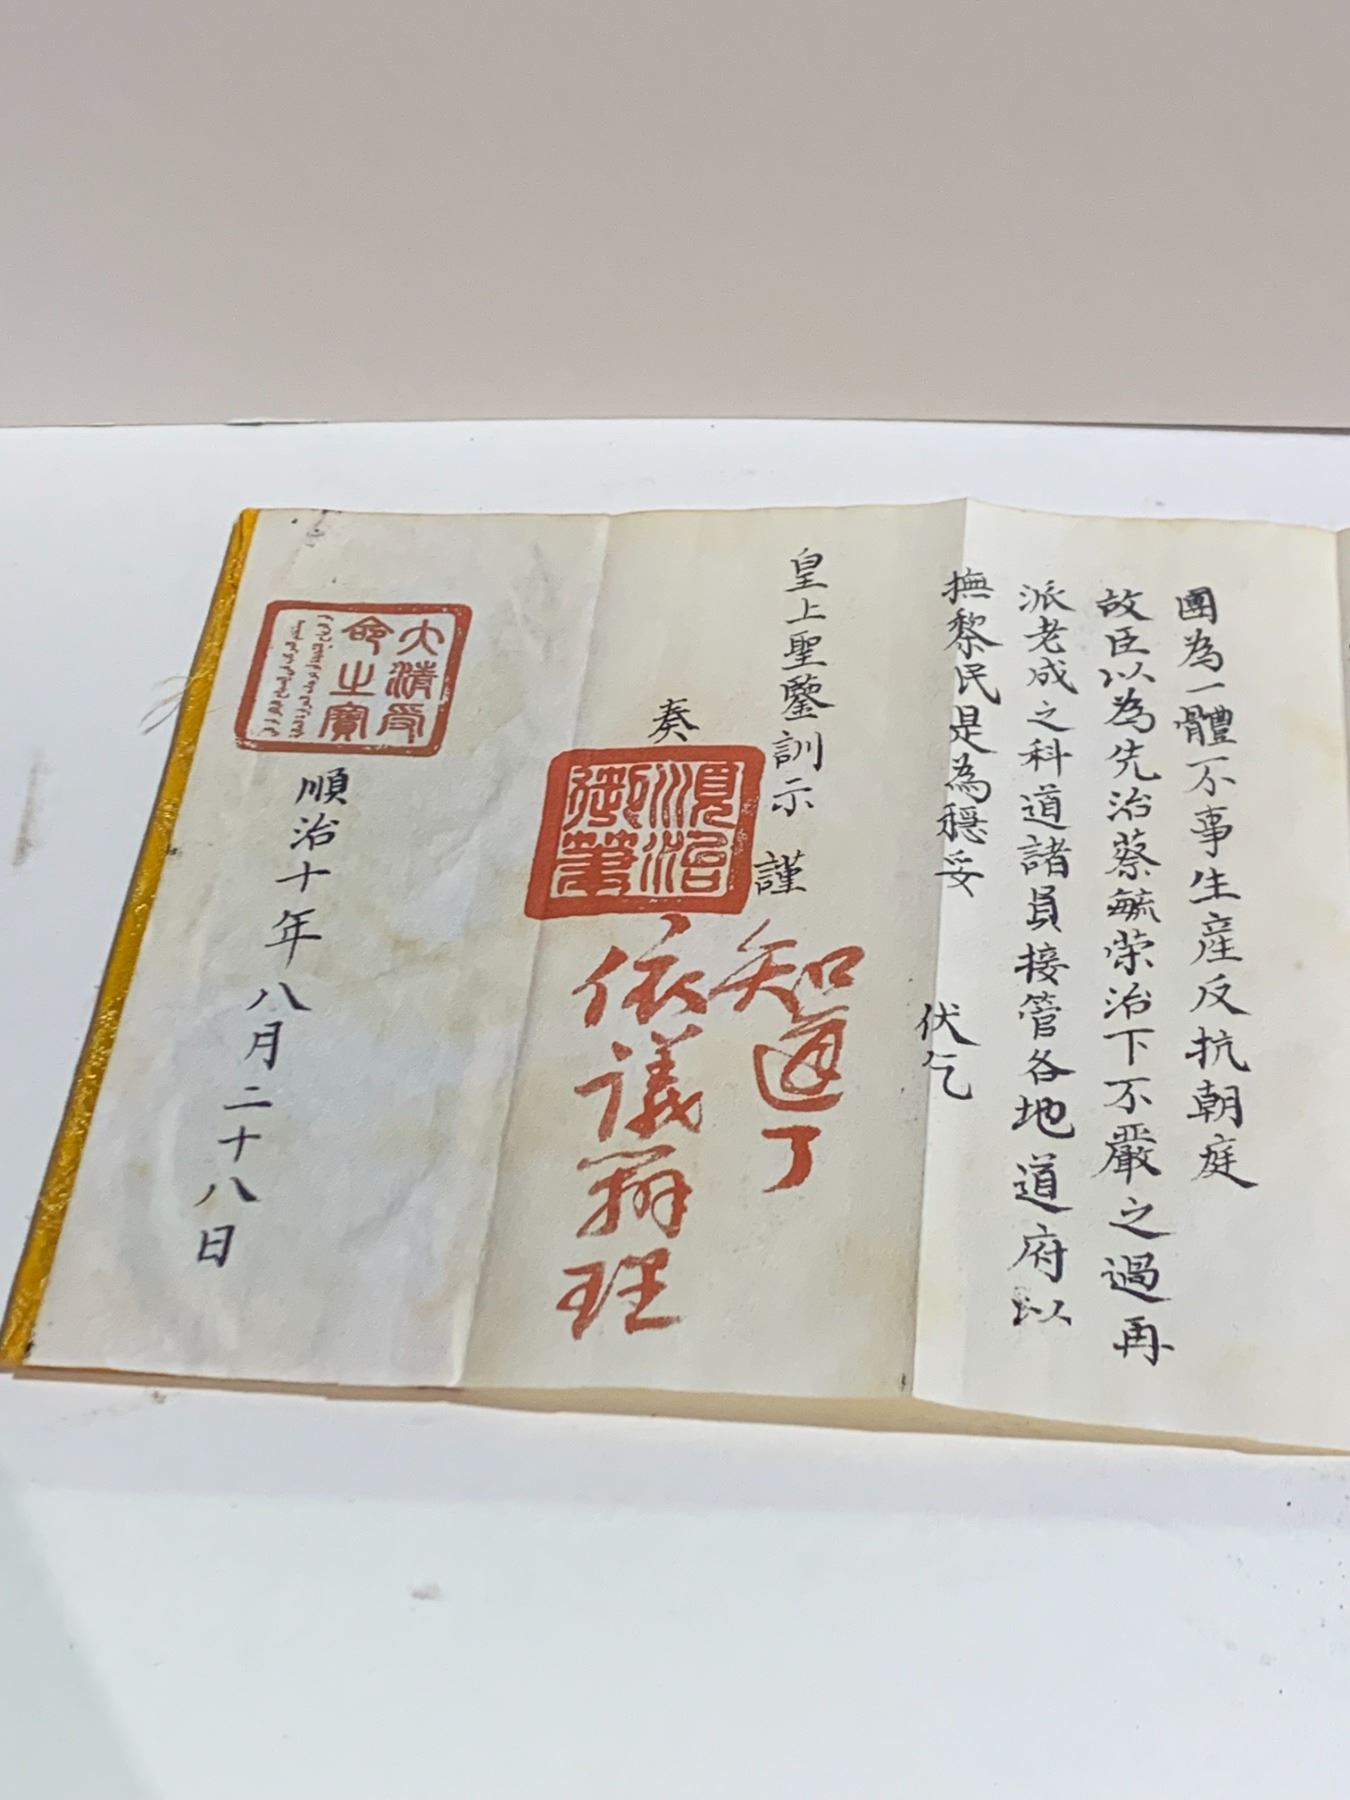 團為一體不事生產反抗朝庭
故臣以為先治蔡毓荣治下不嚴之過再
派老成之科道諸員接管各地道府以
撫黎民是為穩妥 伏乞
皇上聖鑒訓示 謹
奏
順治御筆
知道了
依議辦理
大清受命之寳
順治十年八月二十八日